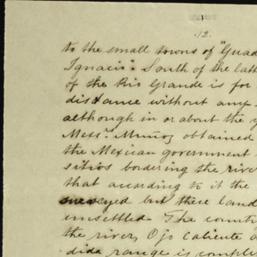 12.
to the small towns of "Guad
Ignacio". South of the latt
of the Rio Grande is for
distance without any
although in or about the y
Messrs. Muñoz obtained
the Mexican government
sitios bordering the river
that according to it the
surveyed but these land
unsettled. The count
the river, Ojo Caliente a
dida range is comple